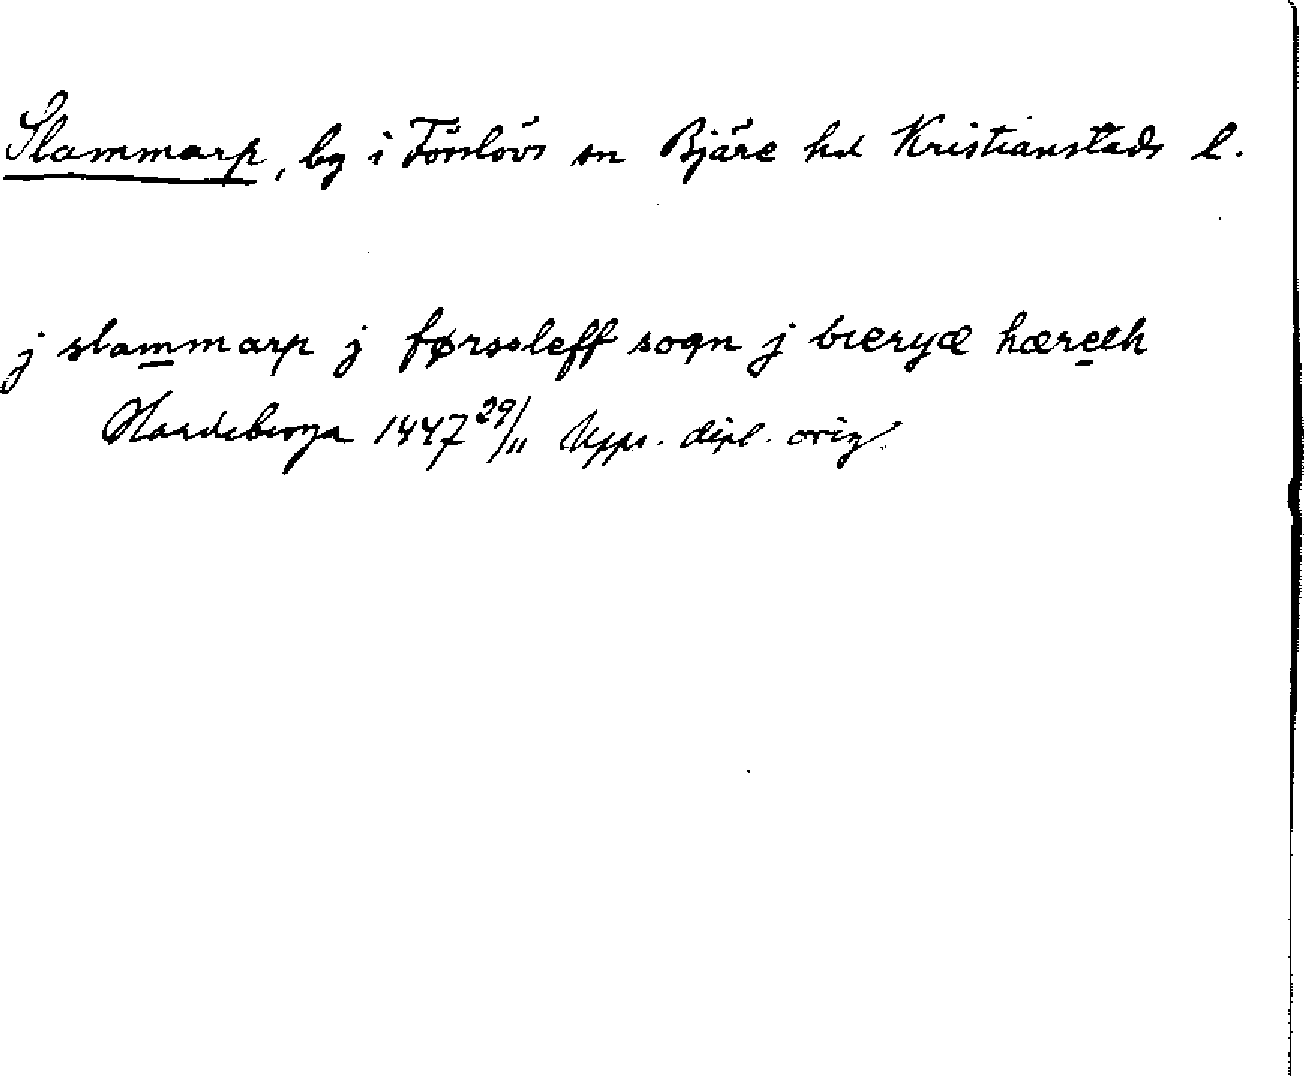 Slammarp, by i Förslövs sn Bjäre hd Kristianstads l.
j slammarp j førssleff sogn j bieryæ hæreth
Hardeberga 1447 29/11 Upps. dipl. orig.